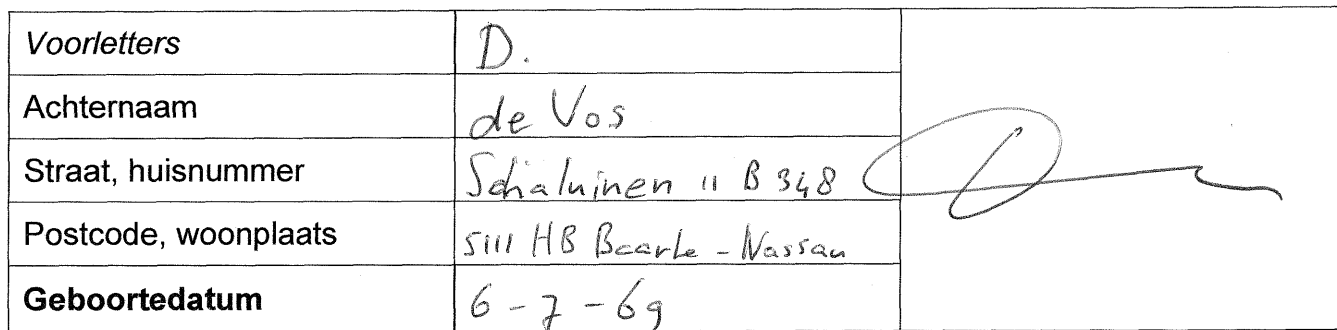 Voorletters D.
Achternaam de Vos
Straat, huisnummer Schaluinen 11 B 348
Postcode, woonplaats 5111 HB Baarle-Nassau
Geboortedatum 6-7-69